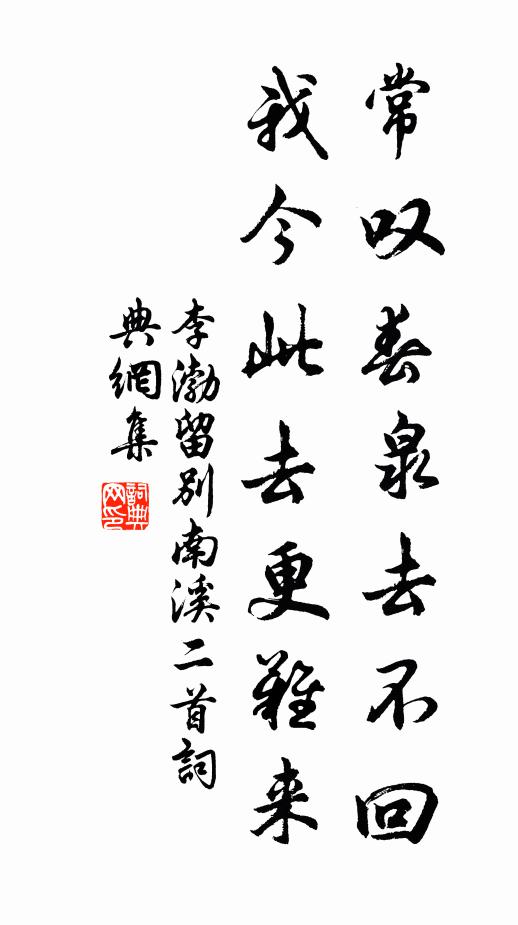 常叹春泉去不回
我今此去更難来
李渤留别南溪二首詞
典網集
詞典网印